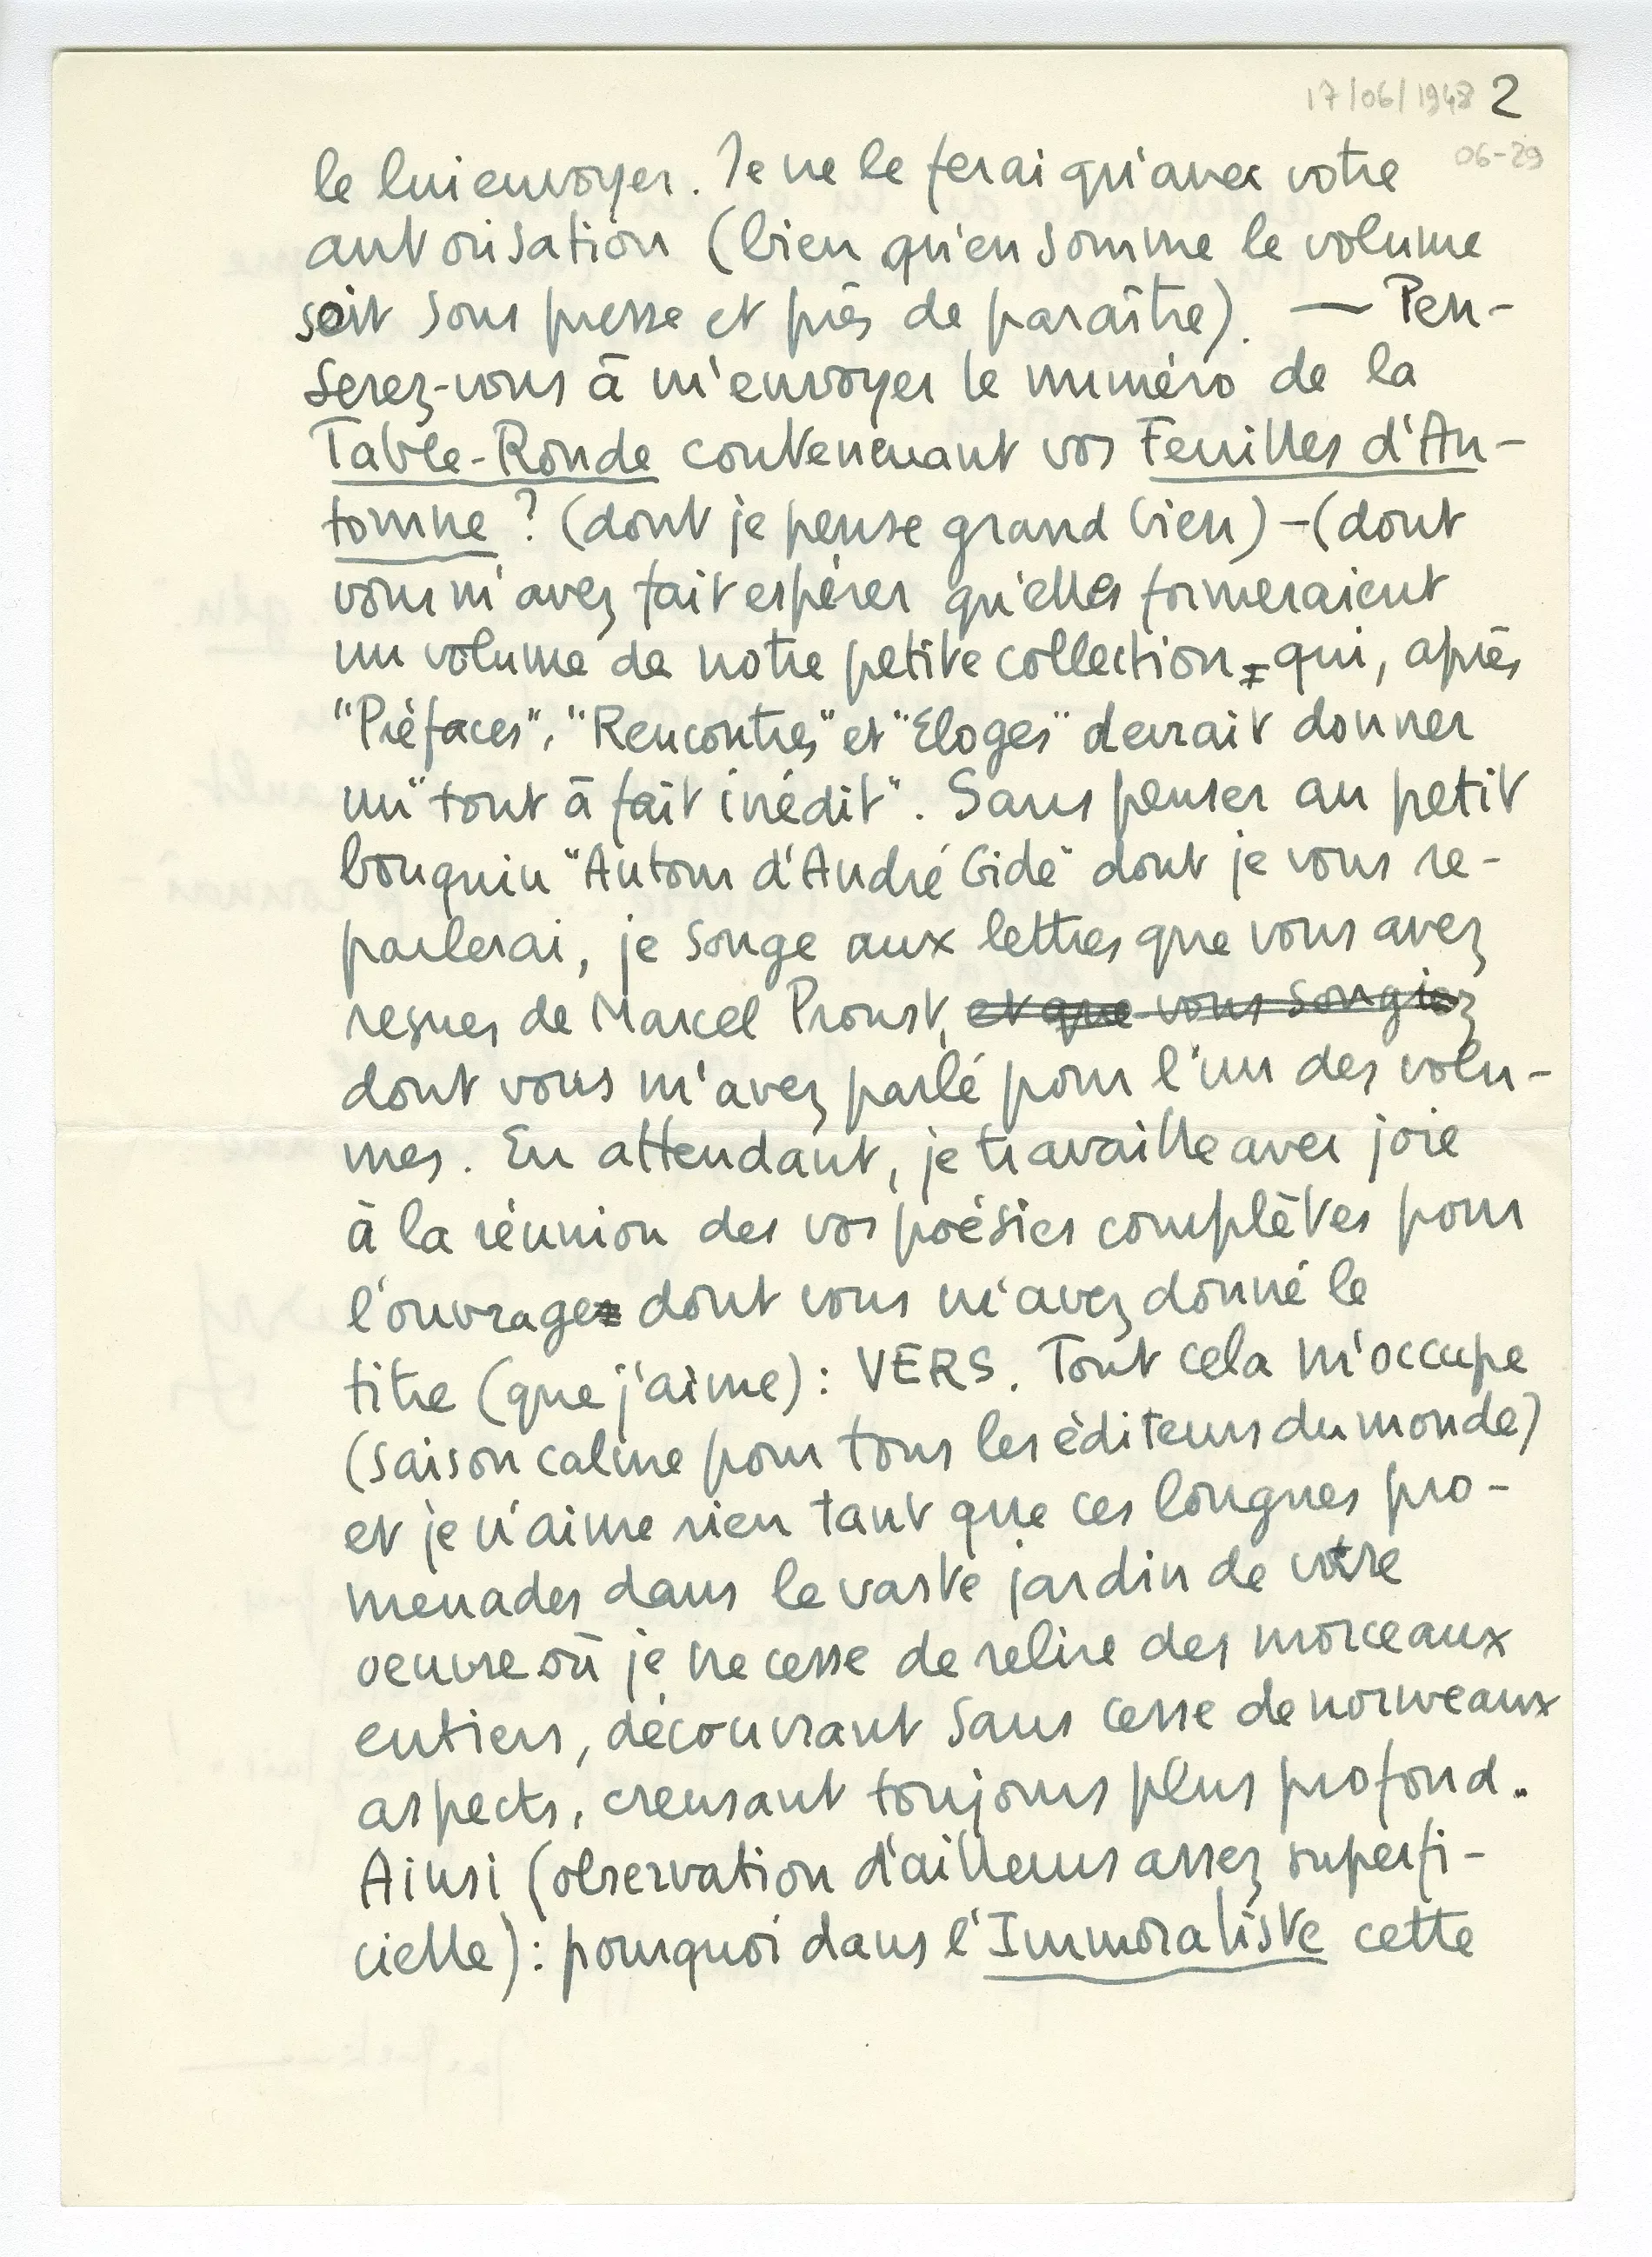 17/06/1948 2
06-29
le lui envoyer. Je ne le ferai qu'avec votre
autorisation (bien qu'en somme le volume
soit sous presse et près de paraître). — Pen-
serez-vous à m'envoyer le numéro de la
Table-Ronde contenenant vos Feuilles d'Au-
tomne ? (dont je pense grand bien) - (dont
vous m'avez fait espérer qu'elles formeraient
un volume de notre petite collection - qui, après
"Préfaces", "Rencontres" et "Eloges" devrait donner
un "tout à fait inédit". Sans penser au petit
bouquin "Autour d'André Gide" dont je vous re-
parlerai, je songe aux lettres que vous avez
reçues de Marcel Proust, et que vous songiez
dont vous m'avez parlé pour l'un des volu-
mes. En attendant, je travaille avec joie
à la réunion des vos poésies complètes pour
l'ouvrage dont vous m'avez donné le
titre (que j'aime) : VERS. Tout cela m'occupe
(saison calme pour tous les éditeurs du monde)
et je n'aime rien tant que ces longues pro-
menades dans le vaste jardin de votre
oeuvre où je ne cesse de relire des morceaux
entiers, découvrant sans cesse de nouveaux
aspects, creusant toujours plus profond.
Ainsi (observation d'ailleurs assez superfi-
cielle) : pourquoi dans l'Immoraliste cette